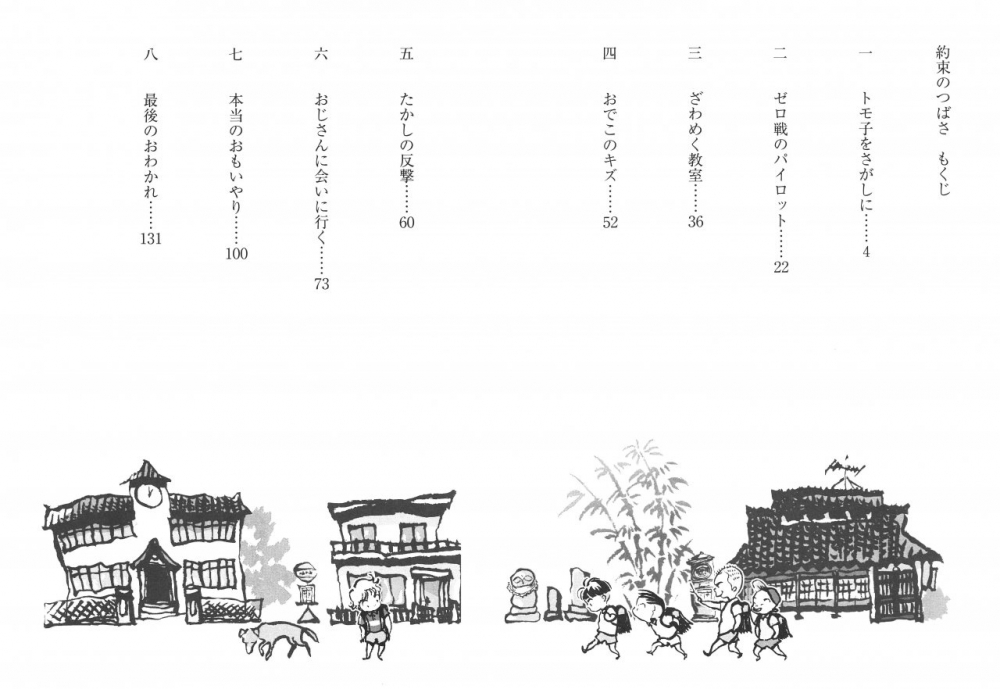 約束のつばさ　もくじ
一　トモ子をさがしに……4
二　ゼロ戦のパイロット……22
三　ざわめく教室……36
四　おでこのキズ……52
五　たかしの反撃……60
六　おじさんに会いに行く……73
七　本当のおもいやり……100
八　最後のおわかれ……131